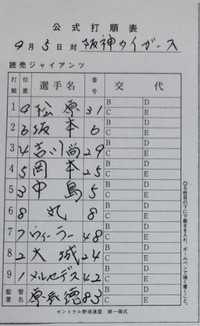 公式打順表
9月5日対 阪神タイガース
読売ジャイアンツ
打順 位置 選手名 番号 交代
1 9 松原 31 B D C E
2 6 坂本 6 B D C E
3 4 吉川尚 29 B D C E
4 5 岡本 25 B D C E
5 3 中島 5 B D C E
6 8 丸 8 B D C E
7 7 ウィーラー 48 B D C E
8 2 大城 24 B D C E
9 1 メルセデス 42 B D C E
監督署名 原辰徳 83 B D C E
セントラル野球連盟 統一様式